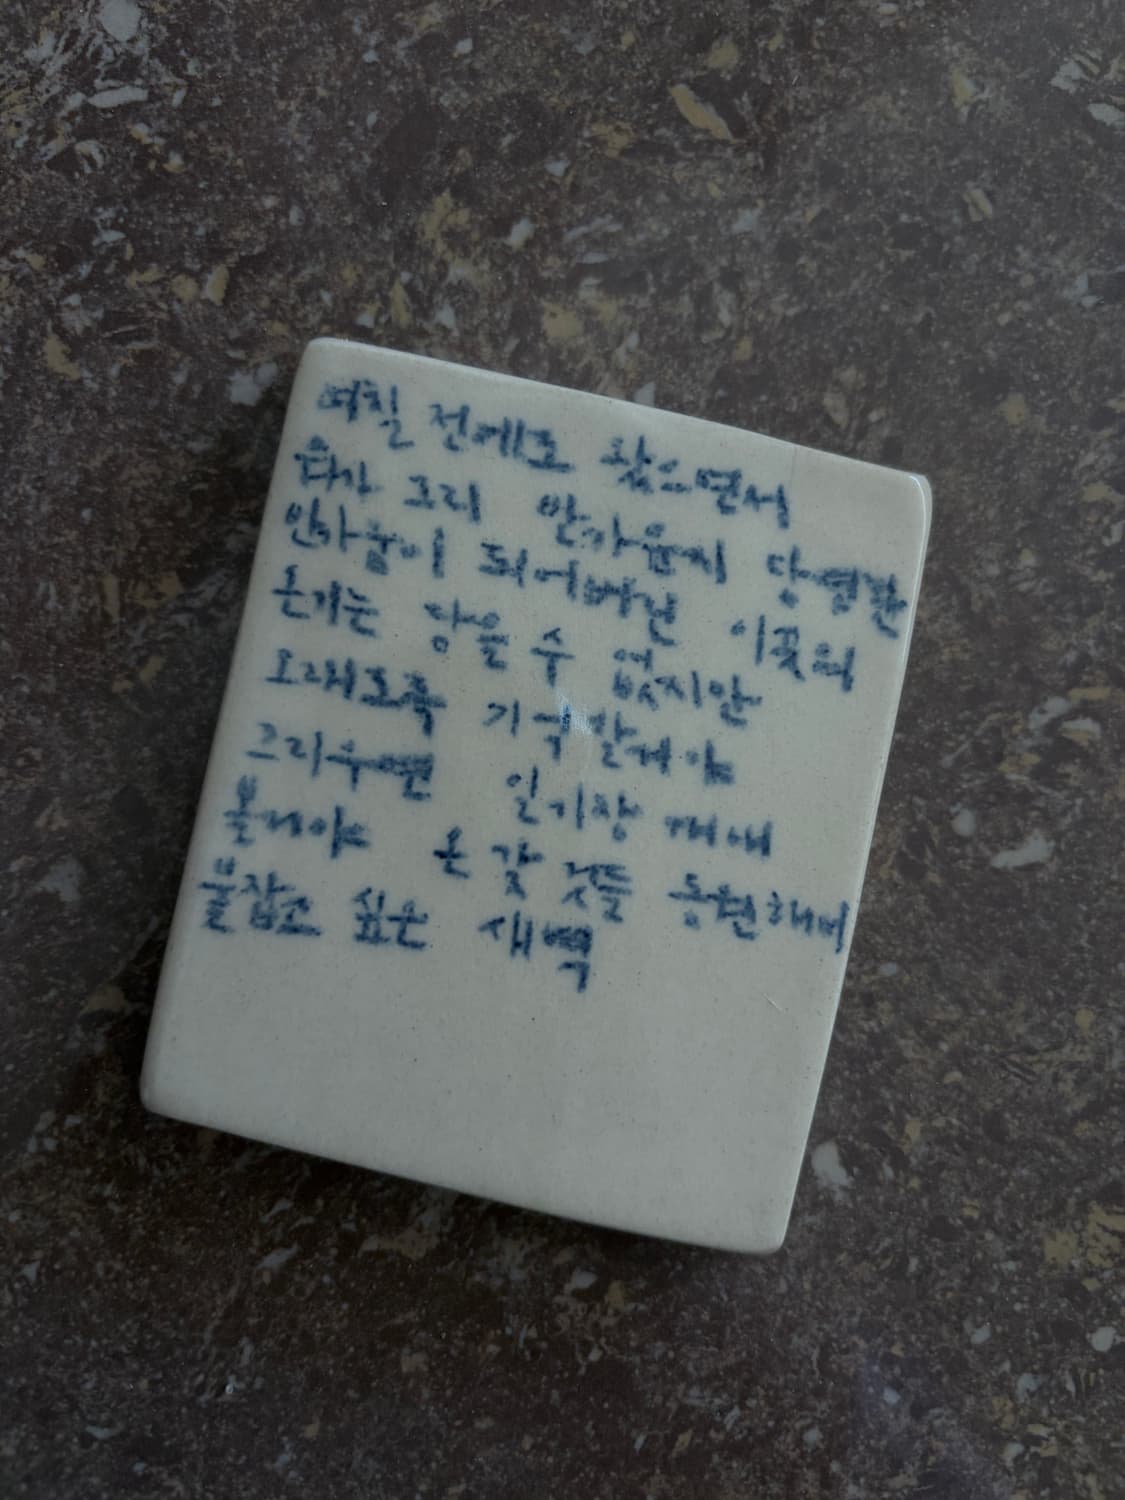 며칠 전에도 왔으면서
뭐가 그리 반가운지 당연한
인사말이 되어버린 이곳의
온기는 담을 수 없지만
오래도록 기억할게야
그리우면 일기장 꺼내
볼게야 온 갖 것들 동원해서
붙잡고 싶은 새벽